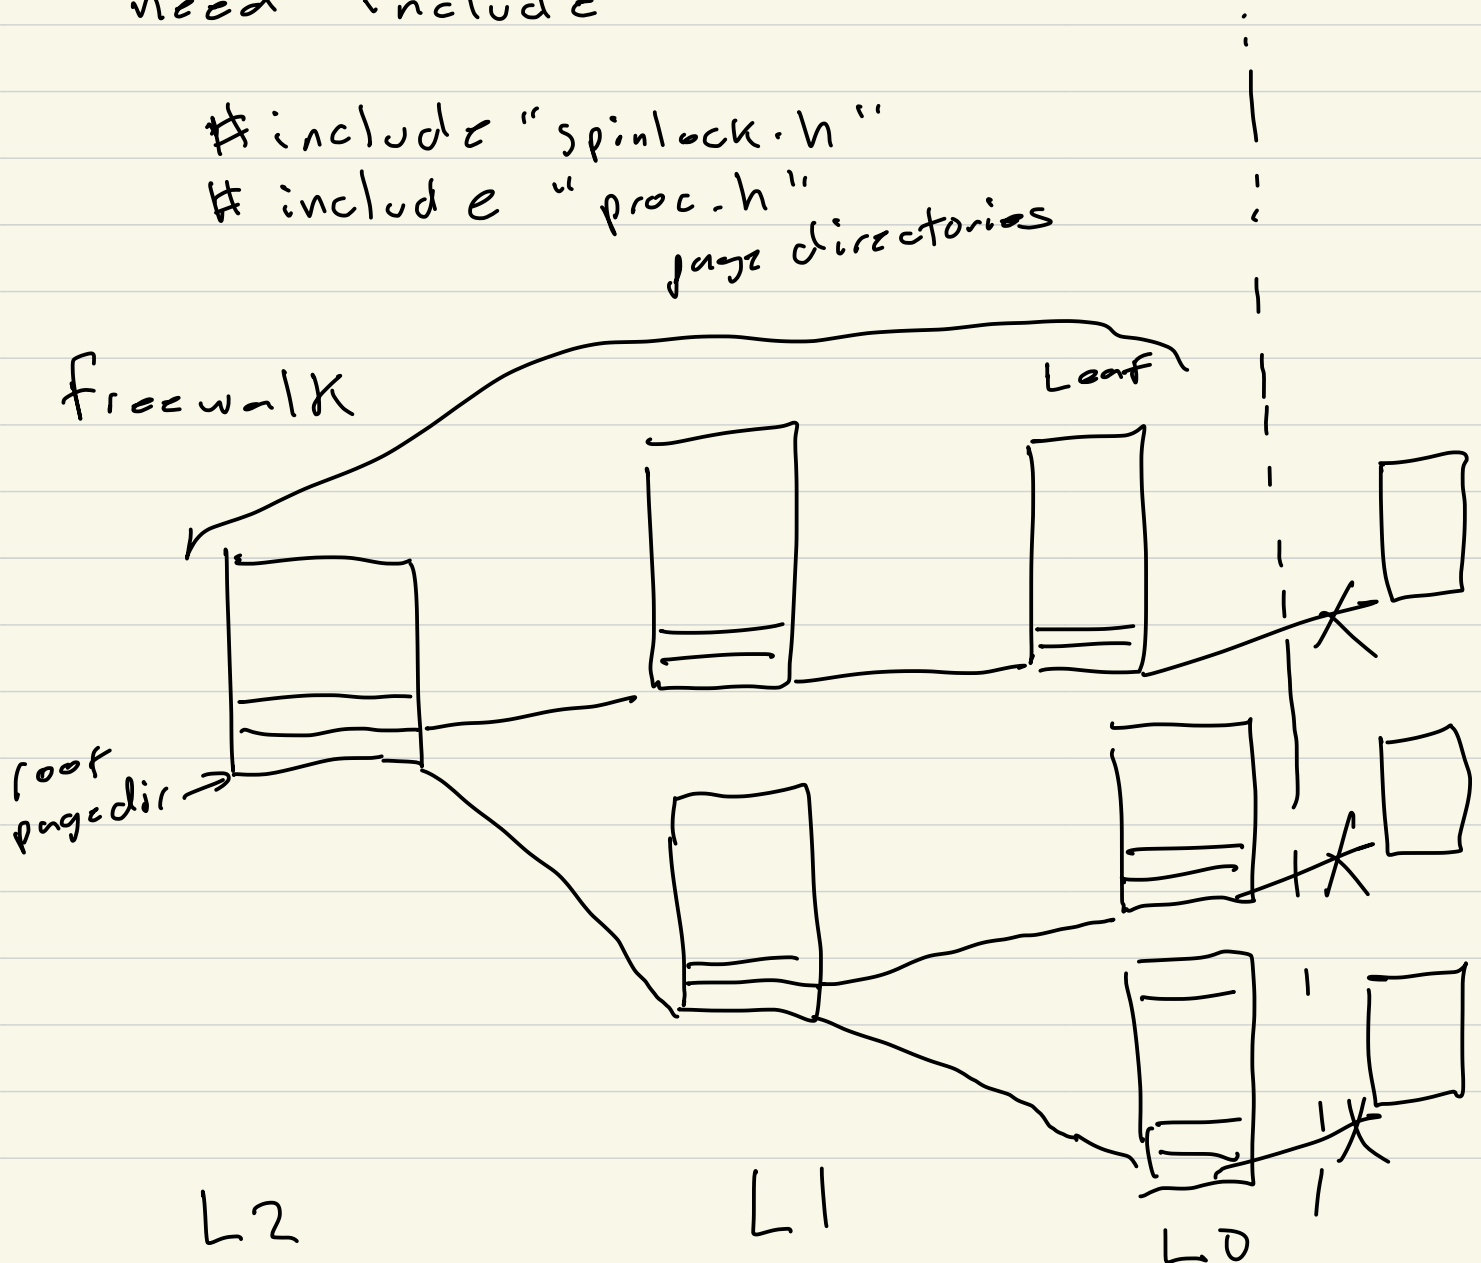 need include
#include "spinlock.h"
#include "proc.h"
page directories
freewalk
Leaf
root
pagedir
L2
L1
L0